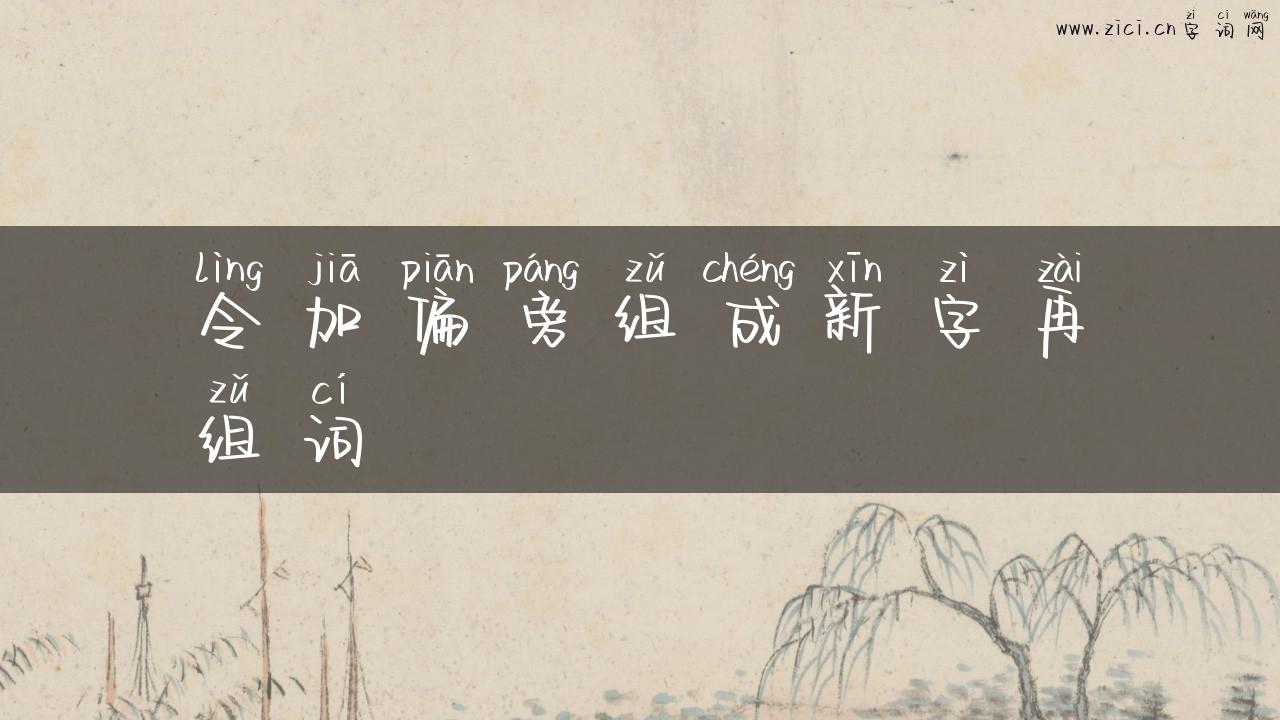 zì cí wǎng
www.zici.cn 字 词 网
lìng jiā piān páng zǔ chéng xīn zì zài
令 加 偏 旁 组 成 新 字 再
zǔ cí
组 词